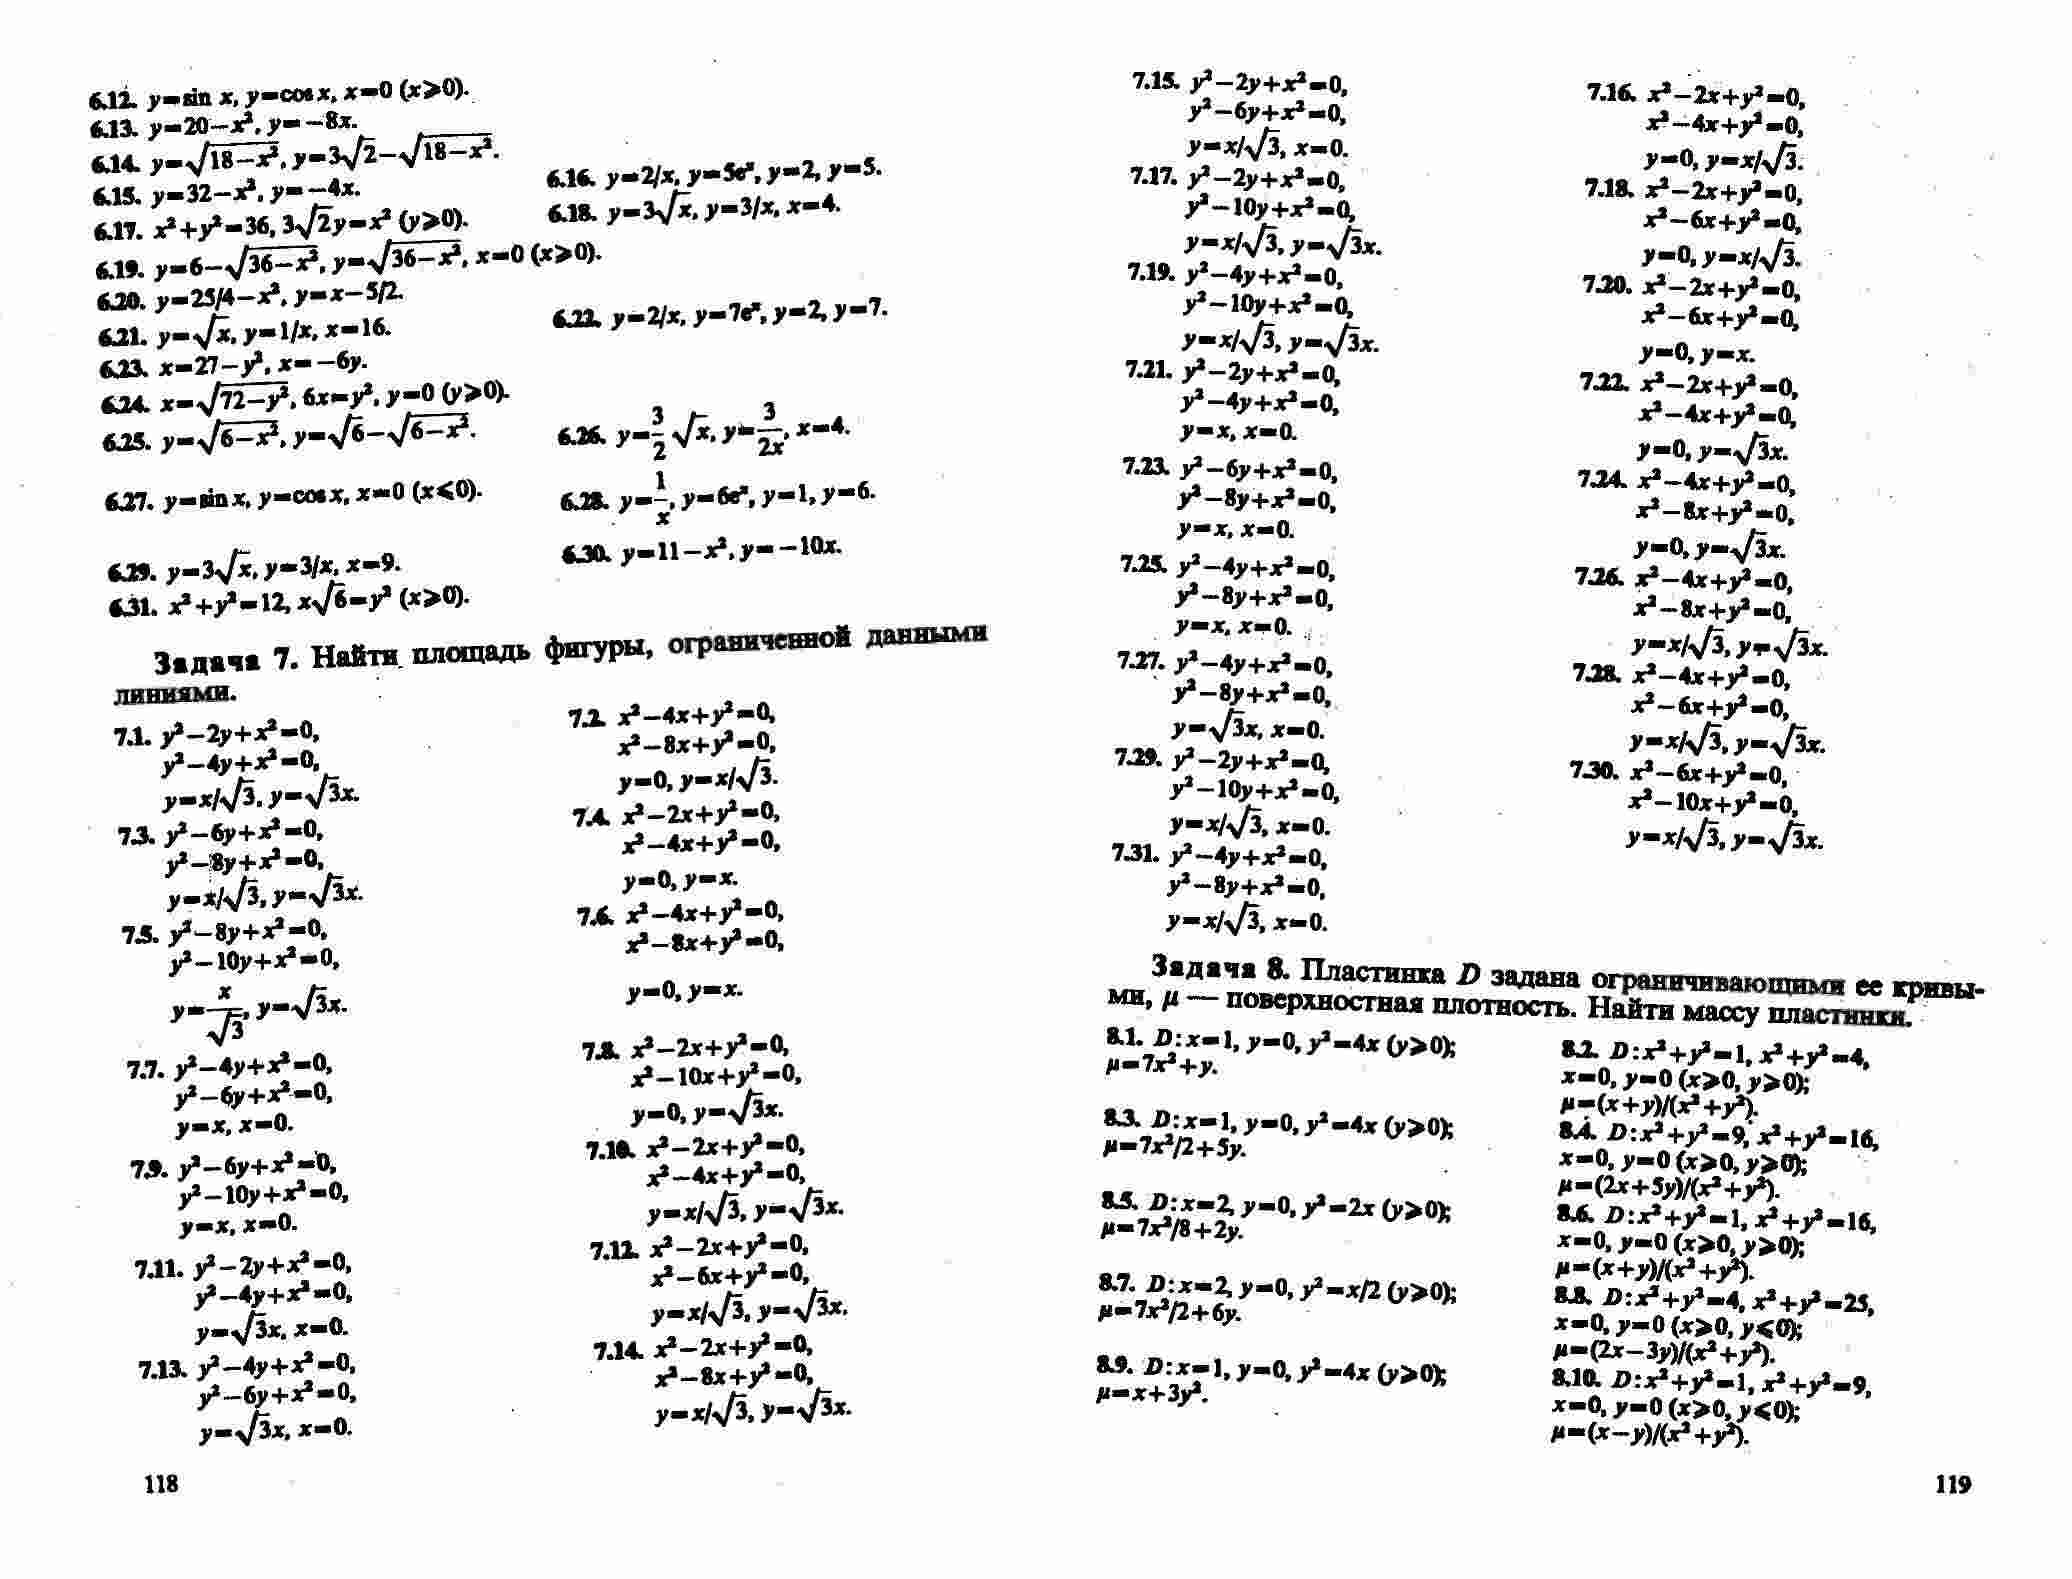 6.12. y=sin x, y=cos x, x=0 (x⩾0).
6.13. y=20−x², y=−8x.
6.14. y=√(18−x²), y=3√2−√(18−x²).
6.15. y=32−x², y=−4x.
6.16. y=2/x, y=5eˣ, y=2, y=5.
6.17. x²+y²=36, 3√2y=x² (y⩾0).
6.18. y=3√x, y=3/x, x=4.
6.19. y=6−√(36−x²), y=√(36−x²), x=0 (x⩾0).
6.20. y=25/4−x², y=x−5/2.
6.21. y=√x, y=1/x, x=16.
6.22. y=2/x, y=7eˣ, y=2, y=7.
6.23. x=27−y², x=−6y.
6.24. x=√(72−y²), 6x=y², y=0 (y⩾0).
6.25. y=√(6−x²), y=√6−√(6−x²).
6.26. y=3/2 √x, y=3/2x, x=4.
6.27. y=sin x, y=cos x, x=0 (x⩽0).
6.28. y=1/x, y=6eˣ, y=1, y=6.
6.29. y=3√x, y=3/x, x=9.
6.30. y=11−x², y=−10x.
6.31. x²+y²=12, x√6=y² (x⩾0).
Задача 7. Найти площадь фигуры, ограниченной данными
линиями.
7.1. y²−2y+x²=0,
y²−4y+x²=0,
y=x/√3, y=√3x.
7.2. x²−4x+y²=0,
x²−8x+y²=0,
y=0, y=x/√3.
7.3. y²−6y+x²=0,
y²−8y+x²=0,
y=x/√3, y=√3x.
7.4. x²−2x+y²=0,
x²−4x+y²=0,
y=0, y=x.
7.5. y²−8y+x²=0,
y²−10y+x²=0,
y=x/√3, y=√3x.
7.6. x²−4x+y²=0,
x²−8x+y²=0,
y=0, y=x.
7.7. y²−4y+x²=0,
y²−6y+x²=0,
y=x, x=0.
7.8. x²−2x+y²=0,
x²−10x+y²=0,
y=0, y=√3x.
7.9. y²−6y+x²=0,
y²−10y+x²=0,
y=x, x=0.
7.10. x²−2x+y²=0,
x²−4x+y²=0,
y=x/√3, y=√3x.
7.11. y²−2y+x²=0,
y²−4y+x²=0,
y=√3x, x=0.
7.12. x²−2x+y²=0,
x²−6x+y²=0,
y=x/√3, y=√3x.
7.13. y²−4y+x²=0,
y²−6y+x²=0,
y=√3x, x=0.
7.14. x²−2x+y²=0,
x²−8x+y²=0,
y=x/√3, y=√3x.
118
7.15. y²−2y+x²=0,
y²−6y+x²=0,
y=x/√3, x=0.
7.16. x²−2x+y²=0,
x²−4x+y²=0,
y=0, y=x/√3.
7.17. y²−2y+x²=0,
y²−10y+x²=0,
y=x/√3, y=√3x.
7.18. x²−2x+y²=0,
x²−6x+y²=0,
y=0, y=x/√3.
7.19. y²−4y+x²=0,
y²−10y+x²=0,
y=x/√3, y=√3x.
7.20. x²−2x+y²=0,
x²−6x+y²=0,
y=0, y=x.
7.21. y²−2y+x²=0,
y²−4y+x²=0,
y=x, x=0.
7.22. x²−2x+y²=0,
x²−4x+y²=0,
y=0, y=√3x.
7.23. y²−6y+x²=0,
y²−8y+x²=0,
y=x, x=0.
7.24. x²−4x+y²=0,
x²−8x+y²=0,
y=0, y=√3x.
7.25. y²−4y+x²=0,
y²−8y+x²=0,
y=x, x=0.
7.26. x²−4x+y²=0,
x²−8x+y²=0,
y=x/√3, y=√3x.
7.27. y²−4y+x²=0,
y²−8y+x²=0,
y=√3x, x=0.
7.28. x²−4x+y²=0,
x²−6x+y²=0,
y=x/√3, y=√3x.
7.29. y²−2y+x²=0,
y²−10y+x²=0,
y=x/√3, x=0.
7.30. x²−6x+y²=0,
x²−10x+y²=0,
y=x/√3, y=√3x.
7.31. y²−4y+x²=0,
y²−8y+x²=0,
y=x/√3, x=0.
Задача 8. Пластинка D задана ограничивающими ее кривы-
ми, μ — поверхностная плотность. Найти массу пластинки.
8.1. D:x=1, y=0, y²=4x (y⩾0);
μ=7x²+y.
8.2. D:x²+y²=1, x²+y²=4,
x=0, y=0 (x⩾0, y⩾0);
μ=(x+y)/(x²+y²).
8.3. D:x=1, y=0, y²=4x (y⩾0);
μ=7x²/2+5y.
8.4. D:x²+y²=9, x²+y²=16,
x=0, y=0 (x⩾0, y⩾0);
μ=(2x+5y)/(x²+y²).
8.5. D:x=2, y=0, y²=2x (y⩾0);
μ=7x²/8+2y.
8.6. D:x²+y²=1, x²+y²=16,
x=0, y=0 (x⩾0, y⩾0);
μ=(x+y)/(x²+y²).
8.7. D:x=2, y=0, y²=x/2 (y⩾0);
μ=7x²/2+6y.
8.8. D:x²+y²=4, x²+y²=25,
x=0, y=0 (x⩾0, y⩽0);
μ=(2x−3y)/(x²+y²).
8.9. D:x=1, y=0, y²=4x (y⩾0);
μ=x+3y².
8.10. D:x²+y²=1, x²+y²=9,
x=0, y=0 (x⩾0, y⩽0);
μ=(x−y)/(x²+y²).
119